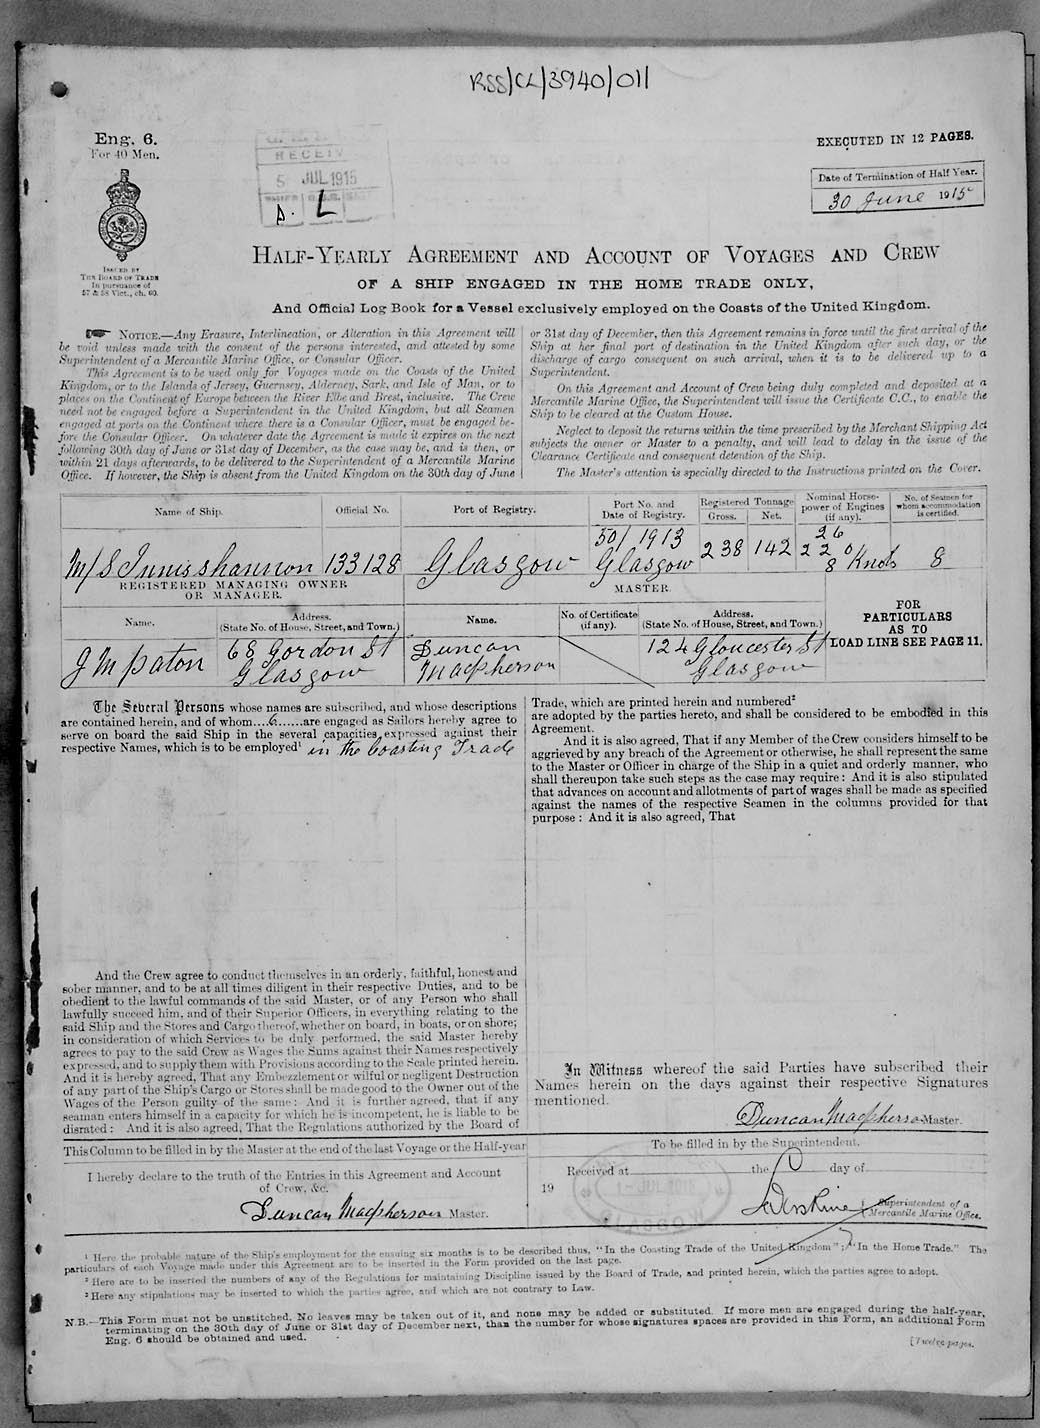 RSS/CL/3940/011
Eng. 6.
For 40 Men.
EXECUTED IN 12 PAGES.
RECEIV
5 JUL 1915
D. L
Date of Termination of Half Year.
30 June 1915
ISSUED BY
THE BOARD OF TRADE
In pursuance of
57 & 58 Vict., ch. 60.
HALF-YEARLY AGREEMENT AND ACCOUNT OF VOYAGES AND CREW
OF A SHIP ENGAGED IN THE HOME TRADE ONLY,
And Official Log Book for a Vessel exclusively employed on the Coasts of the United Kingdom.
NOTICE.—Any Erasure, Interlineation, or Alteration in this Agreement will
be void unless made with the consent of the persons interested, and attested by some
Superintendent of a Mercantile Marine Office, or Consular Officer.
This Agreement is to be used only for Voyages made on the Coasts of the United
Kingdom, or to the Islands of Jersey, Guernsey, Alderney, Sark, and Isle of Man, or to
places on the Continent of Europe between the River Elbe and Brest, inclusive. The Crew
need not be engaged before a Superintendent in the United Kingdom, but all Seamen
engaged at ports on the Continent where there is a Consular Officer, must be engaged be-
fore the Consular Officer. On whatever date the Agreement is made it expires on the next
following 30th day of June or 31st day of December, as the case may be, and is then, or
within 21 days afterwards, to be delivered to the Superintendent of a Mercantile Marine
Office. If however, the Ship is absent from the United Kingdom on the 30th day of June
or 31st day of December, then this Agreement remains in force until the first arrival of the
Ship at her final port of destination in the United Kingdom after such day, or the
discharge of cargo consequent on such arrival, when it is to be delivered up to a
Superintendent.
On this Agreement and Account of Crew being duly completed and deposited at a
Mercantile Marine Office, the Superintendent will issue the Certificate C.C., to enable the
Ship to be cleared at the Custom House.
Neglect to deposit the returns within the time prescribed by the Merchant Shipping Act
subjects the owner or Master to a penalty, and will lead to delay in the issue of the
Clearance Certificate and consequent detention of the Ship.
The Master's attention is specially directed to the Instructions printed on the Cover.
Name of Ship. Official No. Port of Registry. Port No. and Date of Registry. Registered Tonnage Gross. Net. Nominal Horse-power of Engines (if any). No. of Seamen for whom accommodation is certified.
M/S Innisshannon 133128 Glasgow 50/1913 Glasgow 238 142 26 220 8 Knots 8
REGISTERED MANAGING OWNER
OR MANAGER.
MASTER.
Name. Address. (State No. of House, Street, and Town.) Name. No. of Certificate (if any). Address. (State No. of House, Street, and Town.)
FOR
PARTICULARS
AS TO
LOAD LINE SEE PAGE 11.
J M Paton 68 Gordon St Glasgow Duncan Macpherson 124 Gloucester St Glasgow
The Several Persons whose names are subscribed, and whose descriptions
are contained herein, and of whom....6......are engaged as Sailors hereby agree to
serve on board the said Ship in the several capacities expressed against their
respective Names, which is to be employed¹ in the Coasting Trade
And the Crew agree to conduct themselves in an orderly, faithful, honest and
sober manner, and to be at all times diligent in their respective Duties, and to be
obedient to the lawful commands of the said Master, or of any Person who shall
lawfully succeed him, and of their Superior Officers, in everything relating to the
said Ship and the Stores and Cargo thereof, whether on board, in boats, or on shore;
in consideration of which Services to be duly performed, the said Master hereby
agrees to pay to the said Crew as Wages the Sums against their Names respectively
expressed, and to supply them with Provisions according to the Scale printed herein.
And it is hereby agreed, That any Embezzlement or wilful or negligent Destruction
of any part of the Ship's Cargo or Stores shall be made good to the Owner out of the
Wages of the Person guilty of the same: And it is further agreed, that if any
seaman enters himself in a capacity for which he is incompetent, he is liable to be
disrated: And it is also agreed, That the Regulations authorized by the Board of
Trade, which are printed herein and numbered²
are adopted by the parties hereto, and shall be considered to be embodied in this
Agreement.
And it is also agreed, That if any Member of the Crew considers himself to be
aggrieved by any breach of the Agreement or otherwise, he shall represent the same
to the Master or Officer in charge of the Ship in a quiet and orderly manner, who
shall thereupon take such steps as the case may require: And it is also stipulated
that advances on account and allotments of part of wages shall be made as specified
against the names of the respective Seamen in the columns provided for that
purpose: And it is also agreed, That
In Witness whereof the said Parties have subscribed their
Names herein on the days against their respective Signatures
mentioned.
Duncan Macpherson Master.
This Column to be filled in by the Master at the end of the last Voyage or the Half-year
I hereby declare to the truth of the Entries in this Agreement and Account
of Crew, &c.
Duncan Macpherson Master.
To be filled in by the Superintendent.
Received at the day of
19
1 - JUL 1915
Superintendent of a
Mercantile Marine Office.
¹ Here the probable nature of the Ship's employment for the ensuing six months is to be described thus, "In the Coasting Trade of the United Kingdom"; "In the Home Trade." The
particulars of each Voyage made under this Agreement are to be inserted in the Form provided on the last page.
² Here are to be inserted the numbers of any of the Regulations for maintaining Discipline issued by the Board of Trade, and printed herein, which the parties agree to adopt.
³ Here any stipulations may be inserted to which the parties agree, and which are not contrary to Law.
N.B.—This Form must not be unstitched. No leaves may be taken out of it, and none may be added or substituted. If more men are engaged during the half-year,
terminating on the 30th day of June or 31st day of December next, than the number for whose signatures spaces are provided in this Form, an additional Form
Eng. 6 should be obtained and used.
[Twelve pages.